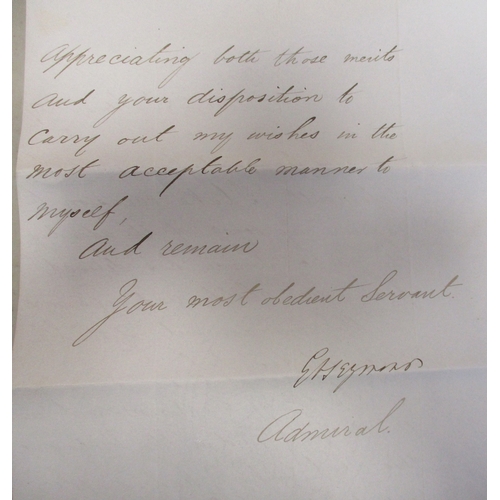 Appreciating both those merits
and your disposition to
carry out my wishes in the
most acceptable manner to
myself,
And remain
Your most obedient Servant.
GHSeymour
Admiral.